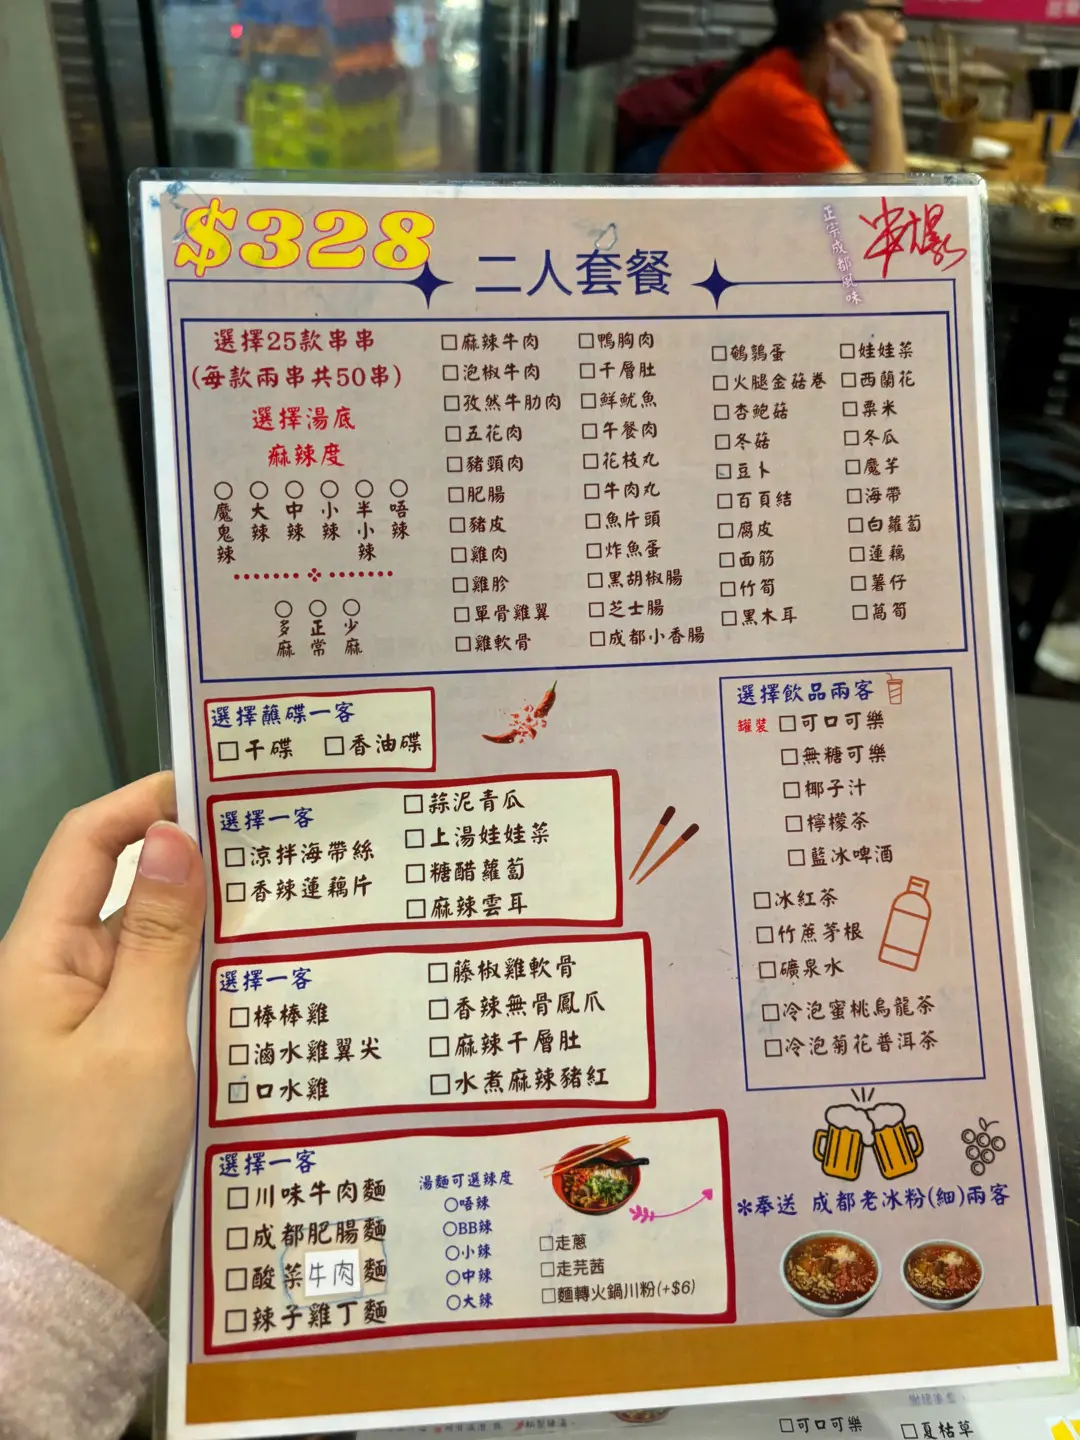 $328
二人套餐
正宗成都風味
串爆
選擇25款串串
(每款兩串共50串)
選擇湯底
麻辣度
魔鬼辣
大辣
中辣
小辣
半小辣
唔辣
多麻
正常
少麻
麻辣牛肉
泡椒牛肉
孜然牛肋肉
五花肉
豬頸肉
肥腸
豬皮
雞肉
雞胗
單骨雞翼
雞軟骨
鴨胸肉
千層肚
鮮魷魚
午餐肉
花枝丸
牛肉丸
魚片頭
炸魚蛋
黑胡椒腸
芝士腸
成都小香腸
鵪鶉蛋
火腿金菇卷
杏鮑菇
冬菇
豆卜
百頁結
腐皮
面筋
竹筍
黑木耳
娃娃菜
西蘭花
粟米
冬瓜
魔芋
海帶
白蘿蔔
蓮藕
薯仔
萵筍
選擇蘸碟一客
干碟 香油碟
選擇一客
涼拌海帶絲
香辣蓮藕片
蒜泥青瓜
上湯娃娃菜
糖醋蘿蔔
麻辣雲耳
選擇一客
棒棒雞
滷水雞翼尖
口水雞
藤椒雞軟骨
香辣無骨鳳爪
麻辣千層肚
水煮麻辣豬紅
選擇一客
川味牛肉麵
成都肥腸麵
酸菜牛肉麵
辣子雞丁麵
湯麵可選辣度
唔辣
BB辣
小辣
中辣
大辣
走蔥
走芫茜
麵轉火鍋川粉(+$6)
選擇飲品兩客
罐裝 可口可樂
無糖可樂
椰子汁
檸檬茶
藍冰啤酒
冰紅茶
竹蔗茅根
礦泉水
冷泡蜜桃烏龍茶
冷泡菊花普洱茶
*奉送 成都老冰粉(細)兩客
可口可樂
夏枯草